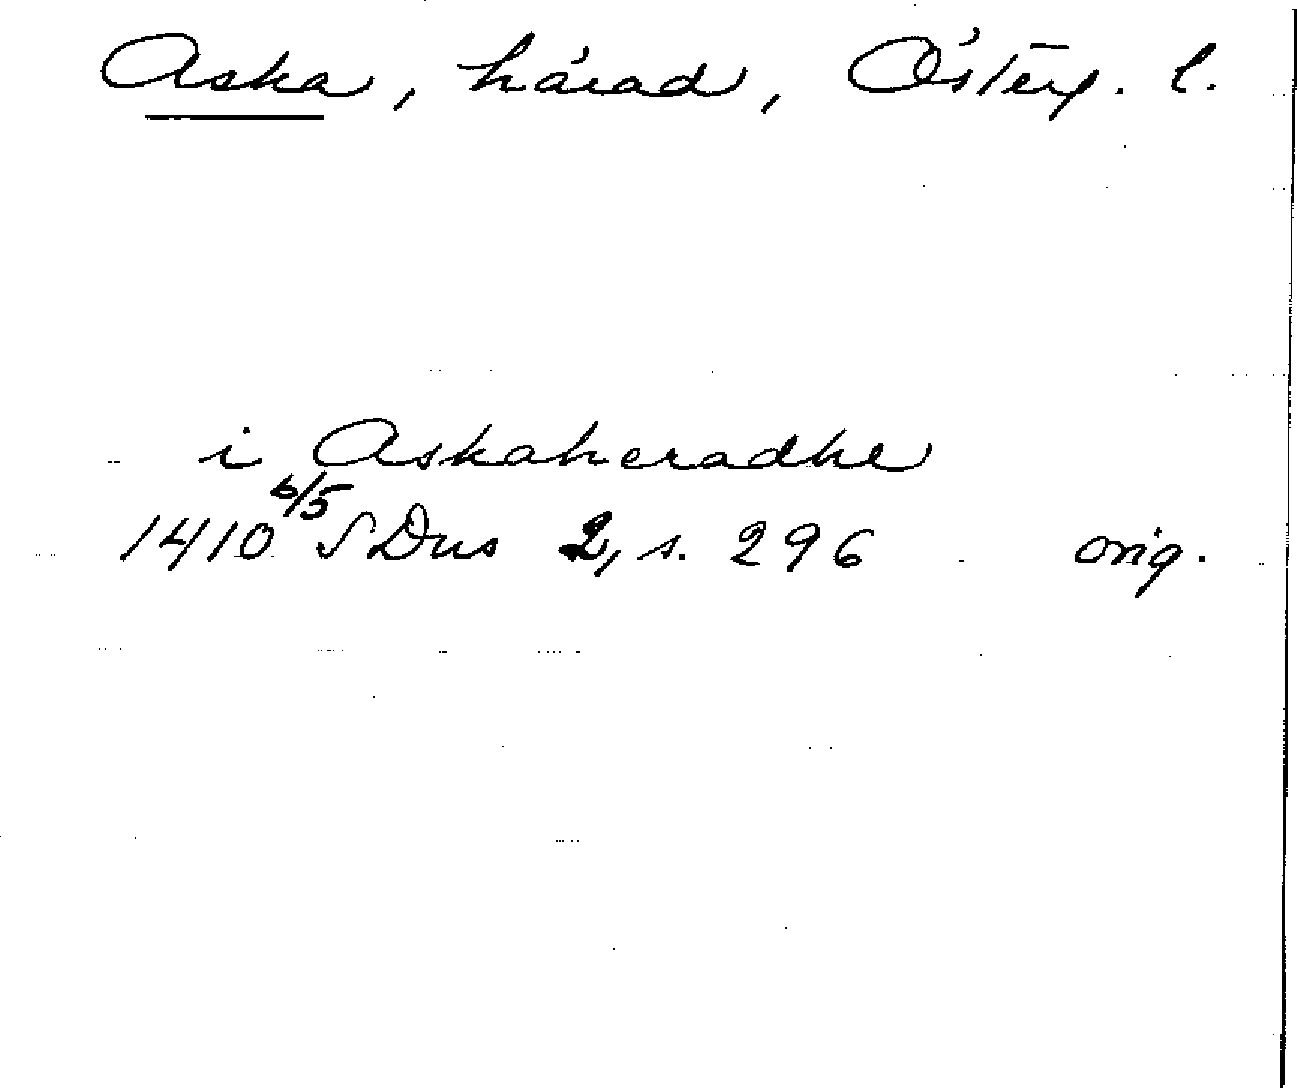 Aska, härad, Österg. l.
i Askaheradhe
1410 6/5 SDns 2, s. 296 orig.